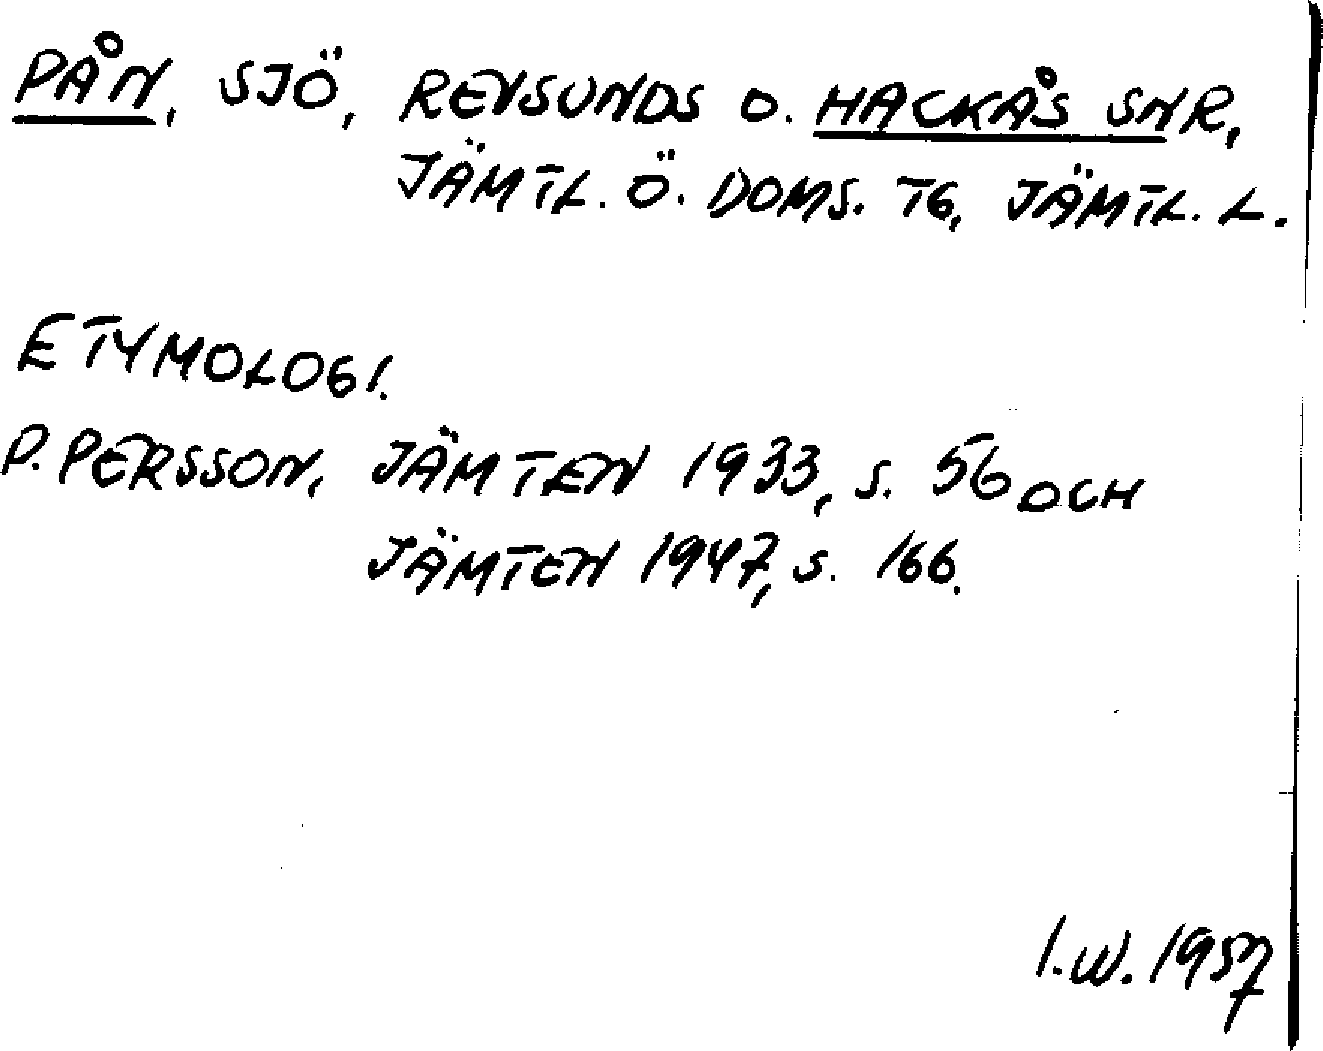 PÅN, SJÖ, REVSUNDS O. HACKÅS SNR,
JÄMTL. Ö. DOMS. TG, JÄMTL. L.
ETYMOLOGI.
P. PERSSON, JÄMTEN 1933, S. 56 OCH
JÄMTEN 1947, S. 166.
I.W. 1957